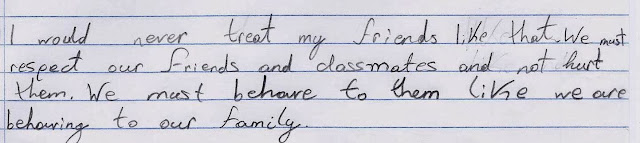 I would never treat my friends like that. We must
respect our friends and classmates and not hurt
them. We must behave to them like we are
behaving to our family.